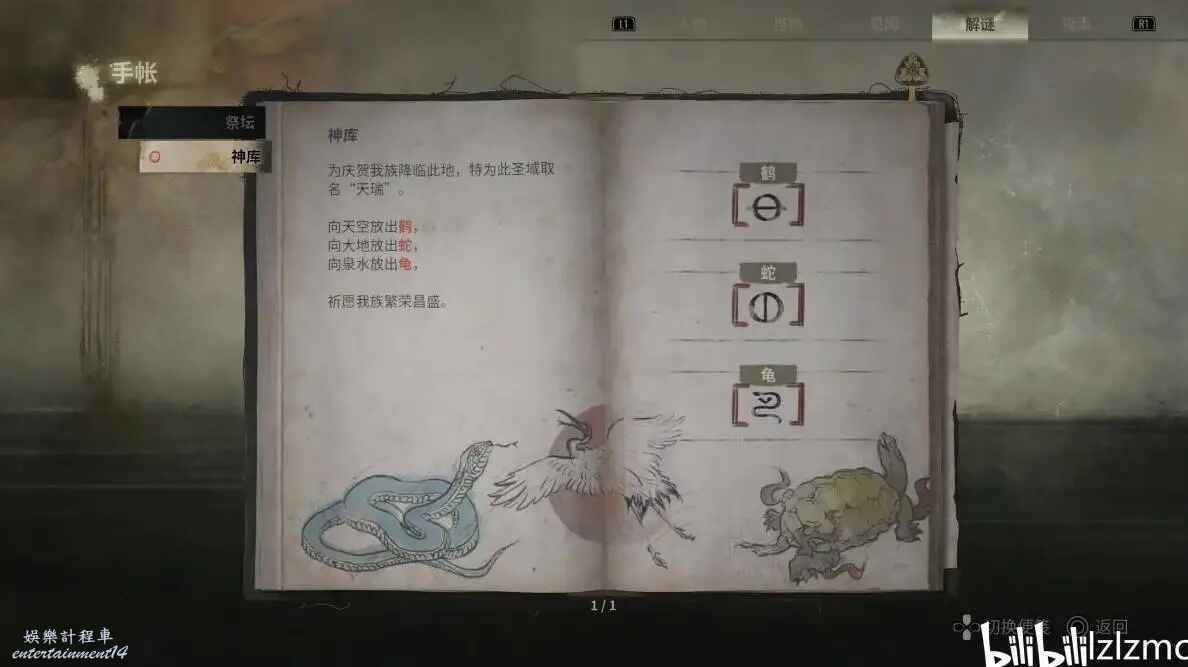 L1
解谜
R1
手帐
祭坛
神库
神库
为庆贺我族降临此地，特为此圣域取
名“天瑞”。
向天空放出鹤，
向大地放出蛇，
向泉水放出龟，
祈愿我族繁荣昌盛。
鹤
蛇
龟
1/1
切换便笺
返回
娛樂計程車
entertainment14
bilibili